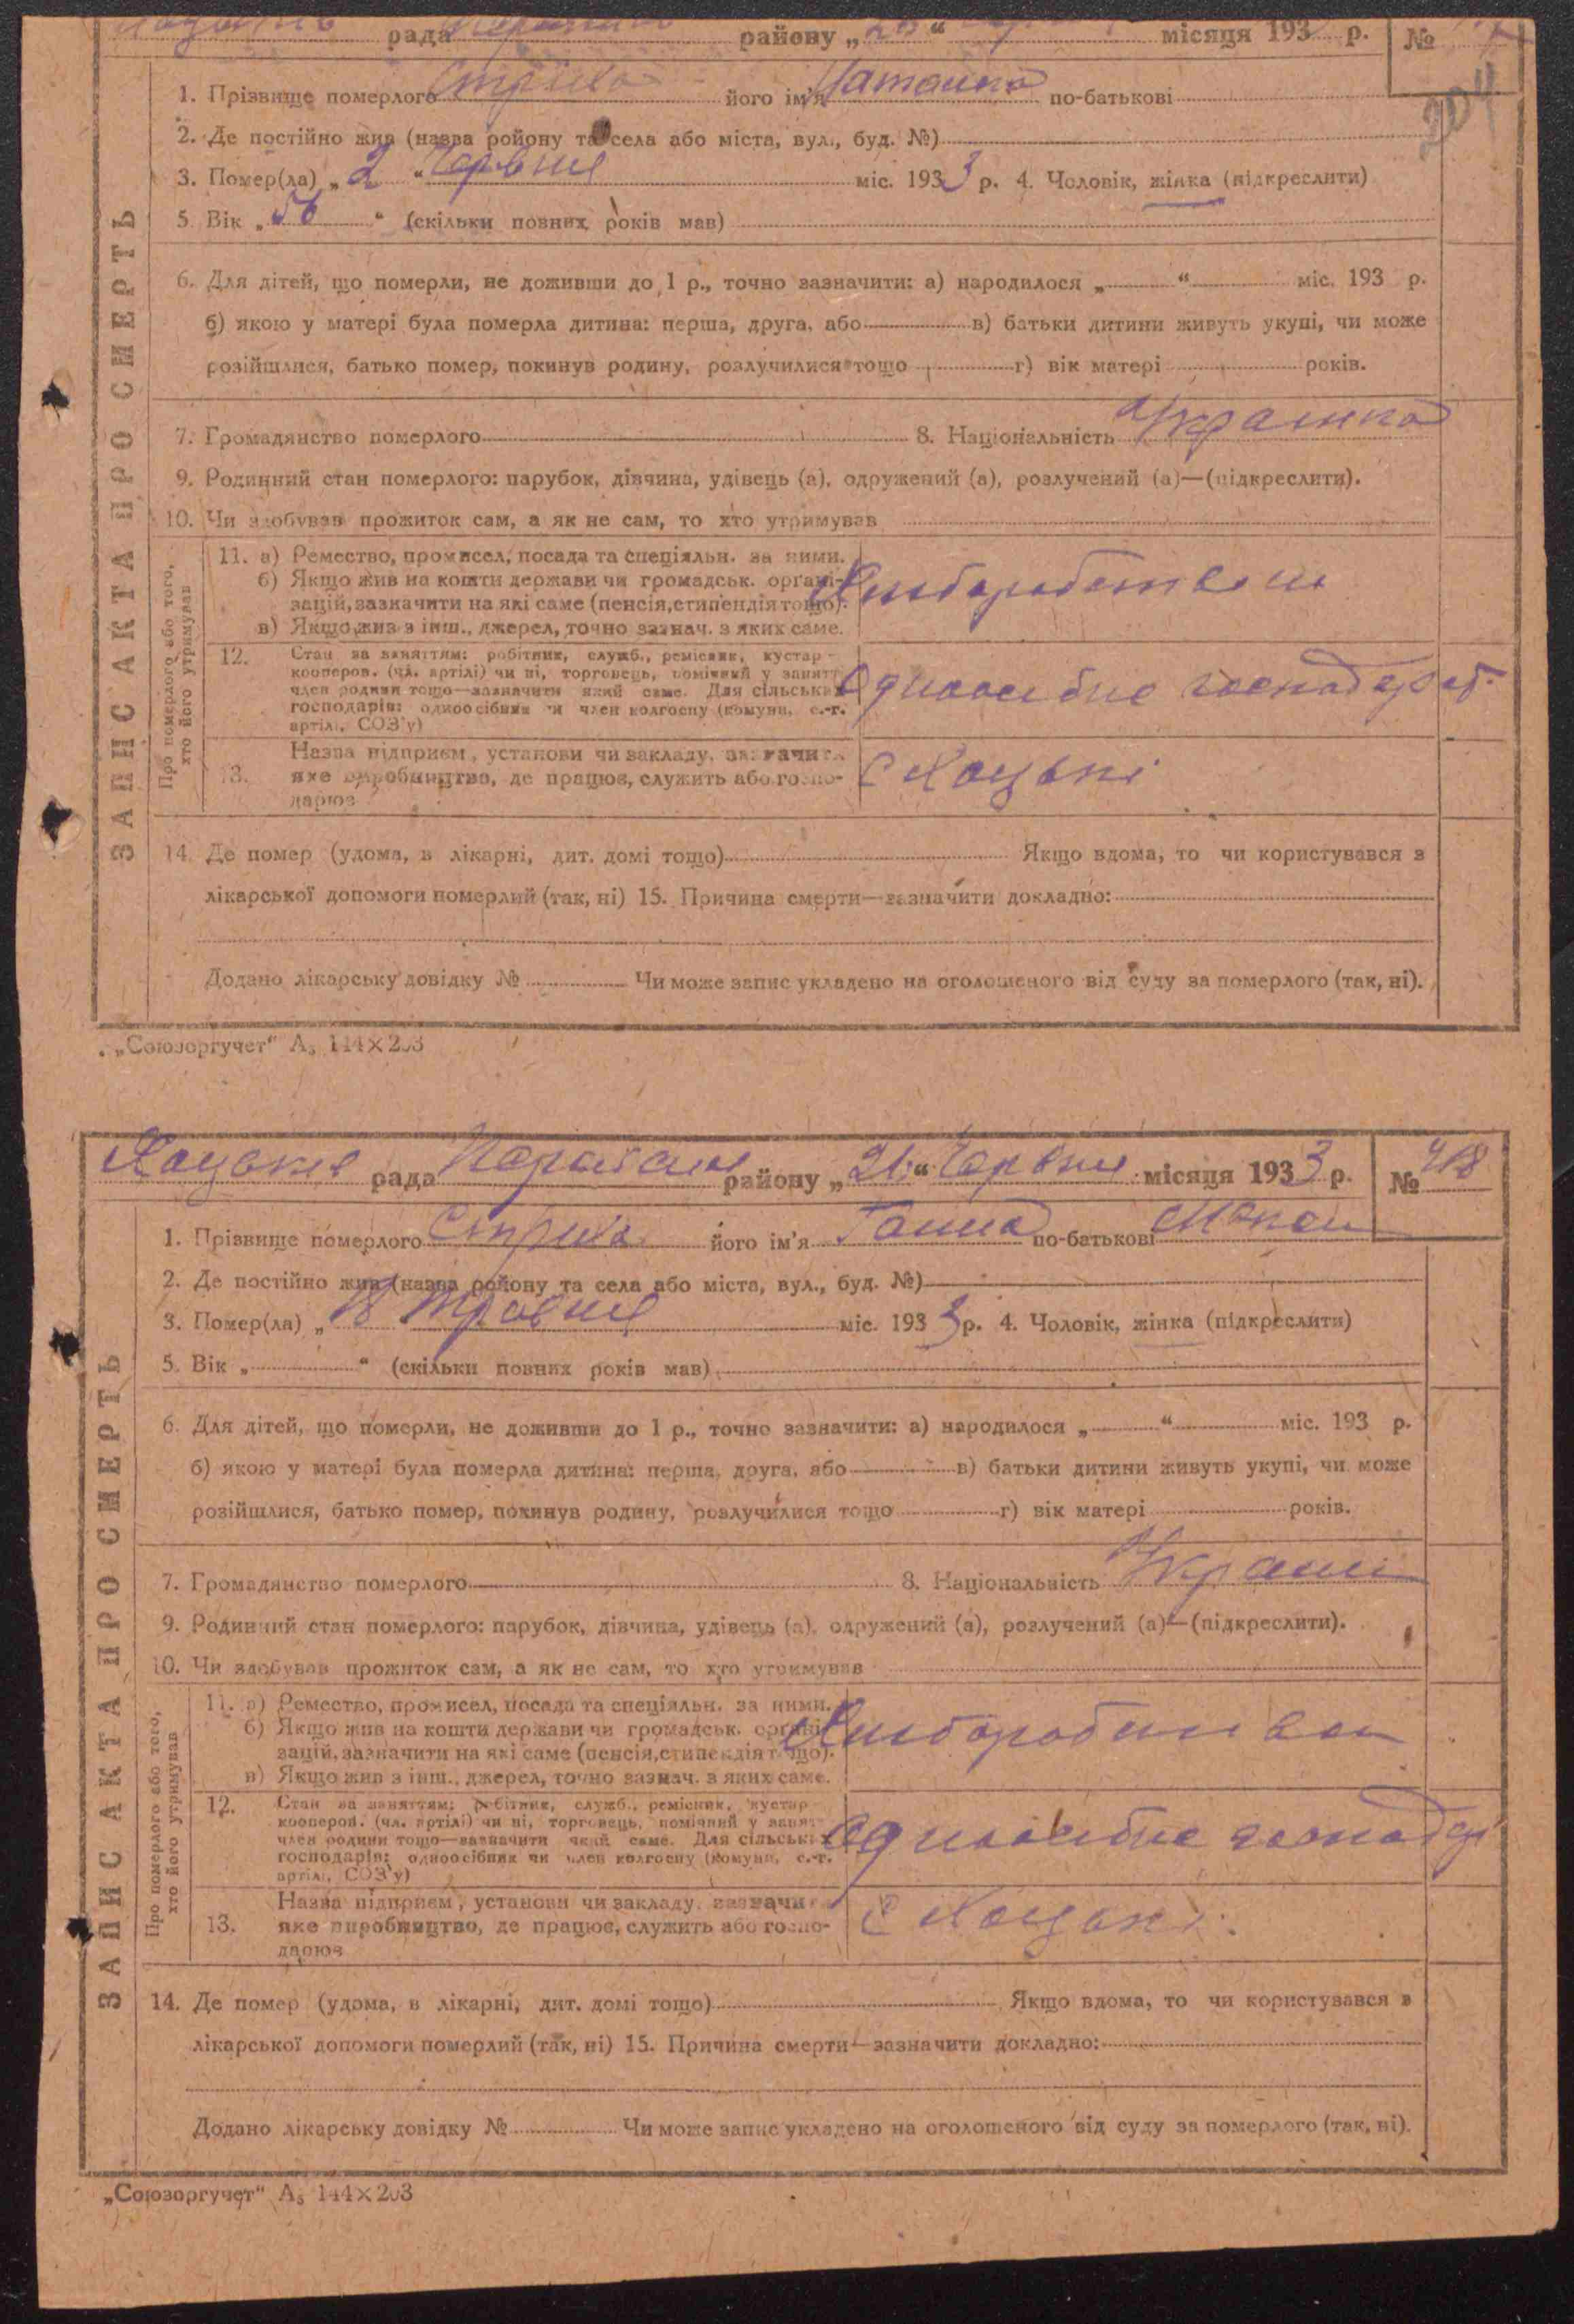 рада району „ “ місяця 193 р. №
1. Прізвище померлого Стріха його ім'я Наталка по-батькові
204
2. Де постійно жив (назва ройону та села або міста, вул., буд. №)
3. Помер(ла) „ 2 “ Червня міс. 1933 р. 4. Чоловік, жінка (підкреслити)
5. Вік „ 56 “ (скільки повних років мав)
6. Для дітей, що померли, не доживши до 1 р., точно зазначити: а) народилося „ “ міс. 193 р.
б) якою у матері була померла дитина: перша, друга, або в) батьки дитини живуть укупі, чи може
розійшлися, батько помер, покинув родину, розлучилися тощо г) вік матері років.
7. Громадянство померлого 8. Національність Українка
9. Родинний стан померлого: парубок, дівчина, удівець (а), одружений (а), розлучений (а)—(підкреслити).
10. Чи здобував прожиток сам, а як не сам, то хто утримував
ЗАПИС АКТА ПРО СМЕРТЬ
Про померлого або того, хто його утримував
11. а) Ремество, промисел, посада та спеціяльн. за ними.
б) Якщо жив на кошти держави чи громадськ. органі-
зацій, зазначити на які саме (пенсія, стипендія тощо).
в) Якщо жив з інш., джерел, точно зазнач. з яких саме.
12. Стан за заняттям: робітник, служб., ремісник, кустар-
кооперов. (чл. артілі) чи ні, торговець, помічний у занятт
член родини тощо—зазначити який саме. Для сільських
господарів: одноосібник чи член колгоспу (комуни, с.-г.
артілі, СОЗ'у)
Одноосібне господар
13. Назва підприєм, установи чи закладу, зазначит
яке виробництво, де працює, служить або госпо-
дарює
с Коцюбки
14. Де помер (удома, в лікарні, дит. домі тощо) Якщо вдома, то чи користувався з
лікарської допомоги померлий (так, ні) 15. Причина смерти—зазначити докладно:
Додано лікарську довідку № Чи може запис укладено на оголошеного від суду за померлого (так, ні).
„Союзоргучет“ А₅ 144×203
рада району „21“ Червня місяця 1933 р. № 418
1. Прізвище померлого Стріха його ім'я Ганна по-батькові
2. Де постійно жив (назва ройону та села або міста, вул., буд. №)
3. Помер(ла) „ 18 Травня міс. 1933 р. 4. Чоловік, жінка (підкреслити)
5. Вік „ “ (скільки повних років мав)
6. Для дітей, що померли, не доживши до 1 р., точно зазначити: а) народилося „ “ міс. 193 р.
б) якою у матері була померла дитина: перша, друга, або в) батьки дитини живуть укупі, чи може
розійшлися, батько помер, покинув родину, розлучилися тощо г) вік матері років.
7. Громадянство померлого 8. Національність
9. Родинний стан померлого: парубок, дівчина, удівець (а), одружений (а), розлучений (а)—(підкреслити).
10. Чи здобував прожиток сам, а як не сам, то хто утримував
ЗАПИС АКТА ПРО СМЕРТЬ
Про померлого або того, хто його утримував
11. а) Ремество, промисел, посада та спеціяльн. за ними.
б) Якщо жив на кошти держави чи громадськ. органі-
зацій, зазначити на які саме (пенсія, стипендія тощо).
в) Якщо жив з інш., джерел, точно зазнач. з яких саме.
12. Стан за заняттям: робітник, служб., ремісник, кустар-
кооперов. (чл. артілі) чи ні, торговець, помічний у занят
член родини тощо—зазначити який саме. Для сільських
господарів: одноосібник чи член колгоспу (комуни, с.-г.
артілі, СОЗ'у)
Одноосібне господар
13. Назва підприєм, установи чи закладу, зазначи
яке виробництво, де працює, служить або госпо-
дарює
14. Де помер (удома, в лікарні, дит. домі тощо) Якщо вдома, то чи користувався з
лікарської допомоги померлий (так, ні) 15. Причина смерти—зазначити докладно:
Додано лікарську довідку № Чи може запис укладено на оголошеного від суду за померлого (так, ні).
„Союзоргучет“ А₅ 144×203